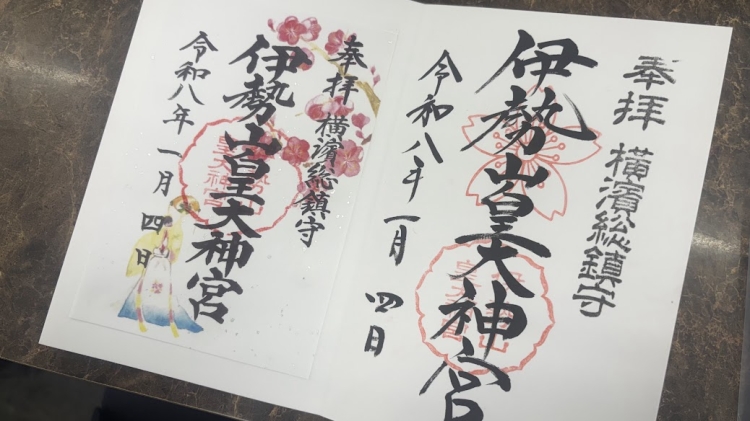 奉拝 横濱総鎮守
伊勢山皇大神宮
令和八年一月四日
奉拝 横濱総鎮守
伊勢山皇大神宮
令和八年一月四日